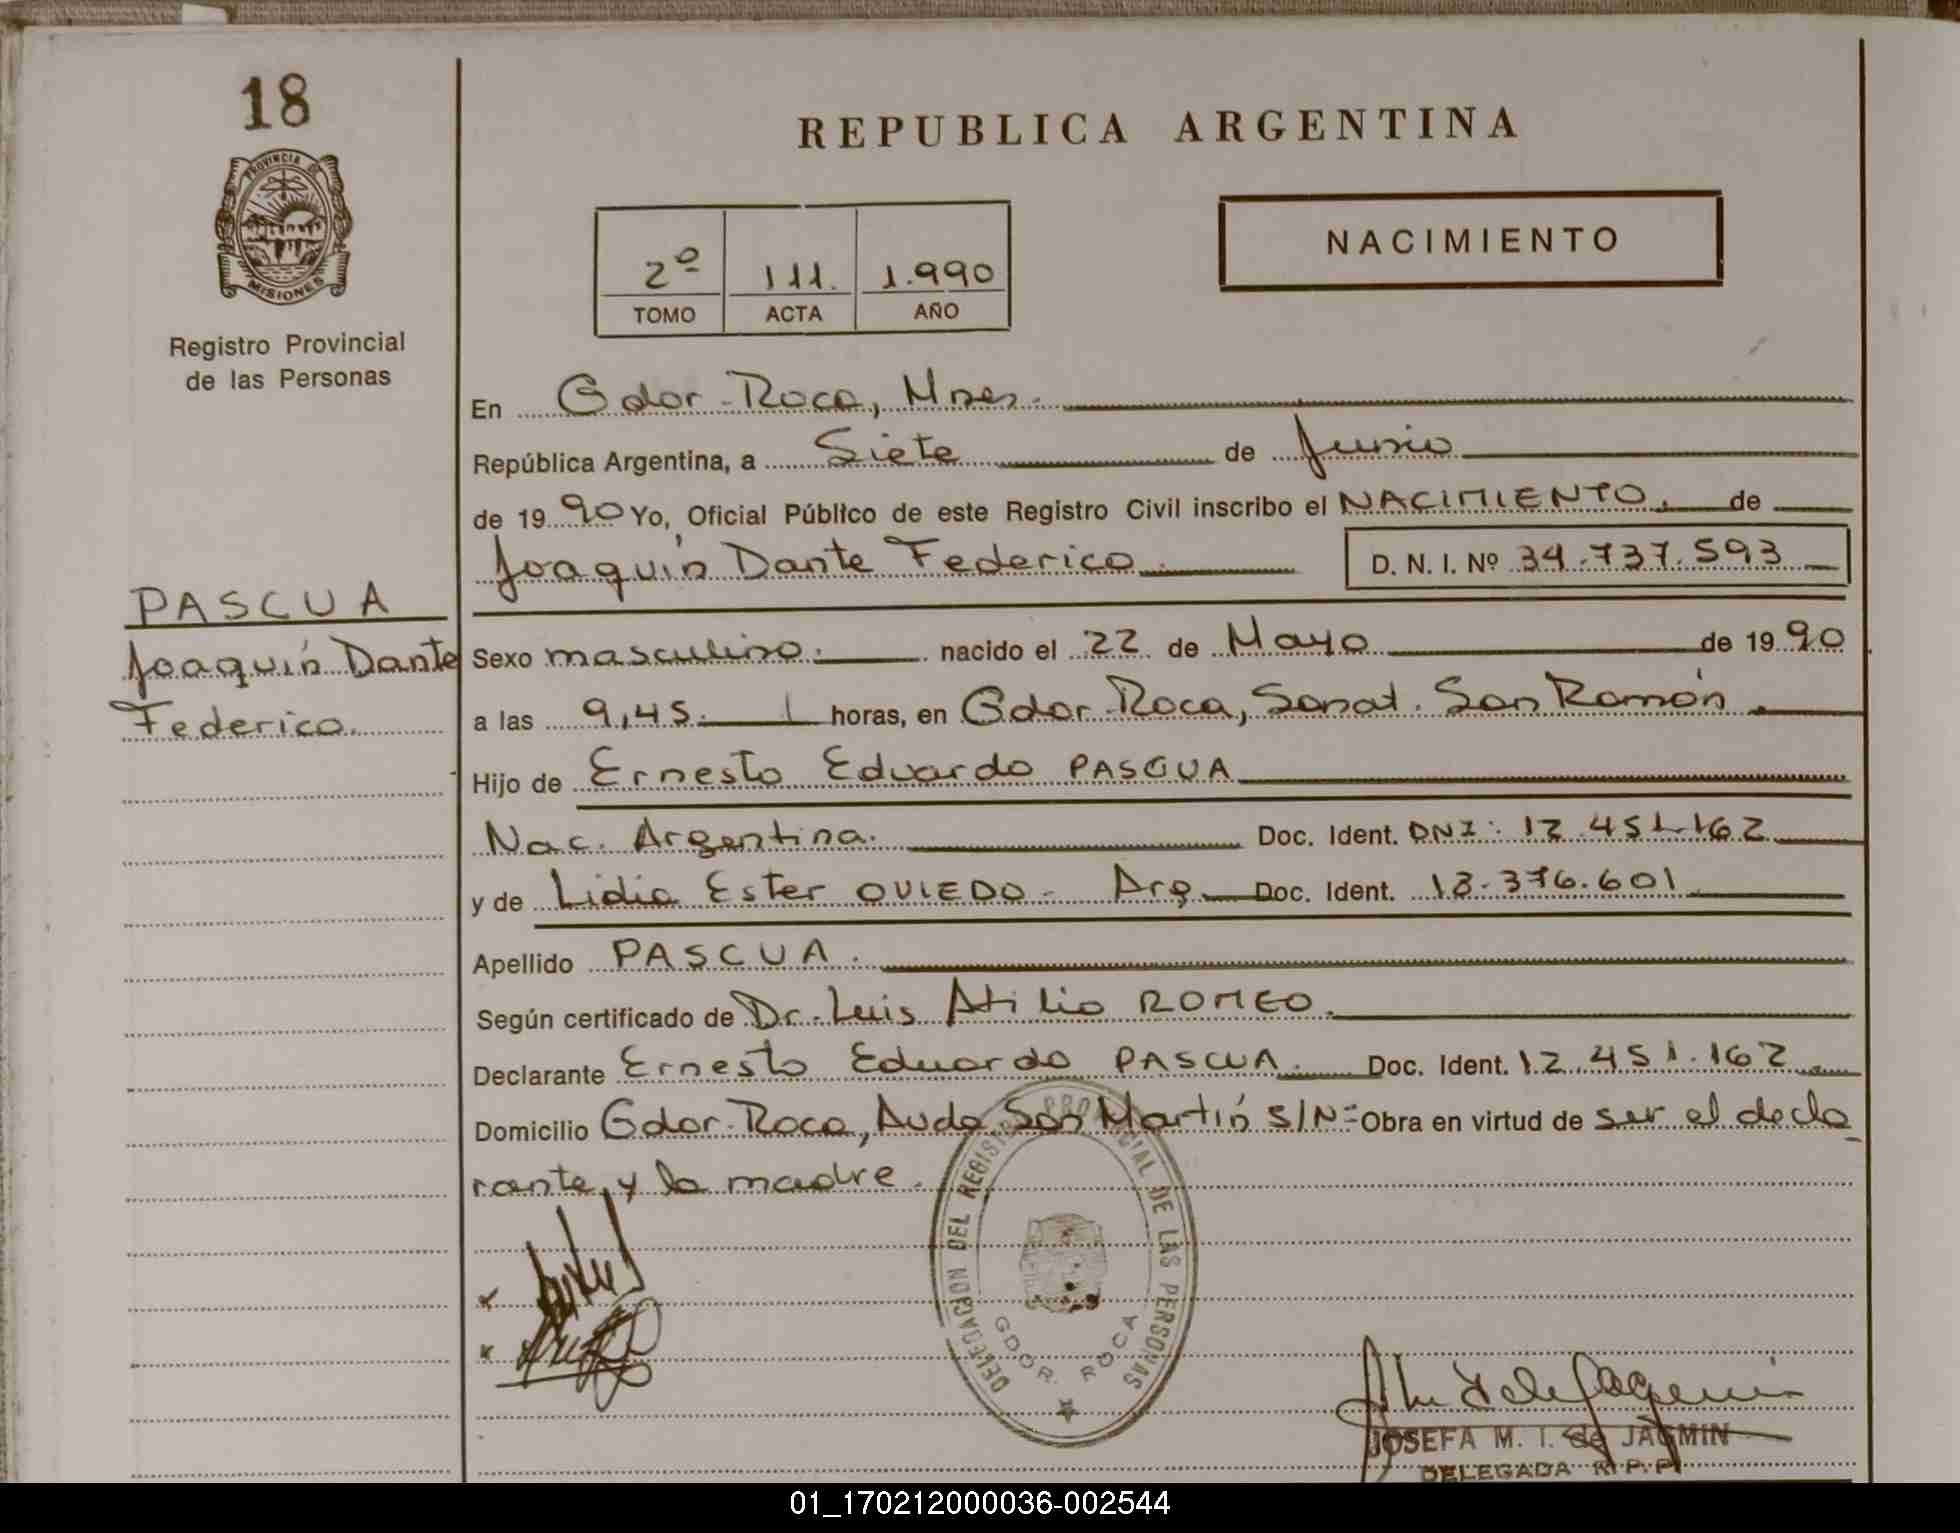 18
REPUBLICA ARGENTINA
PROVINCIA DE
MISIONES
Registro Provincial
de las Personas
NACIMIENTO
2º 111. 1.990
TOMO ACTA AÑO
En Gdor. Roca, Mnes.
República Argentina, a Siete de Junio
de 1990 Yo, Oficial Público de este Registro Civil inscribo el NACIMIENTO. de
Joaquín Dante Federico. D. N. I. Nº 34.737.593
PASCUA
Joaquín Dante
Federico.
Sexo masculino. nacido el 22 de Mayo de 1990
a las 9,45. horas, en Gdor. Roca, Sanat. San Ramón
Hijo de Ernesto Eduardo PASCUA
Nac. Argentina. Doc. Ident. DNI: 12.451.162
y de Lidia Ester OVIEDO- Arg. Doc. Ident. 13.376.601
Apellido PASCUA.
Según certificado de Dr. Luis Atilio ROMEO.
Declarante Ernesto Eduardo PASCUA. Doc. Ident. 12.451.162
Domicilio Gdor. Roca, Avda San Martín S/Nº Obra en virtud de ser el decla
rante, y la madre.
DELEGACION DEL REGISTRO PROVINCIAL DE LAS PERSONAS
GDOR. ROCA
JOSEFA M. I. de JAGMIN
DELEGADA R.P.P.
01_170212000036-002544